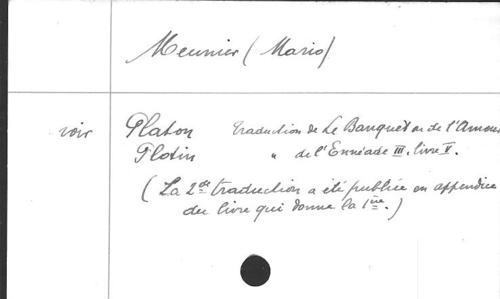 Meunier (Mario)
voir Platon traduction de Le Banquet ou de l'Amour
Plotin " de l'Ennéade III, livre V.
(La 2de traduction a été publiée en appendice
du livre qui donne la 1ère.)